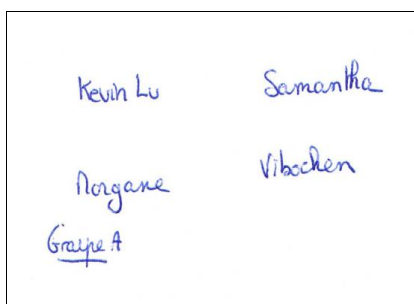 Kevin Lu
Samantha
Morgane
Vibochen
Groupe A